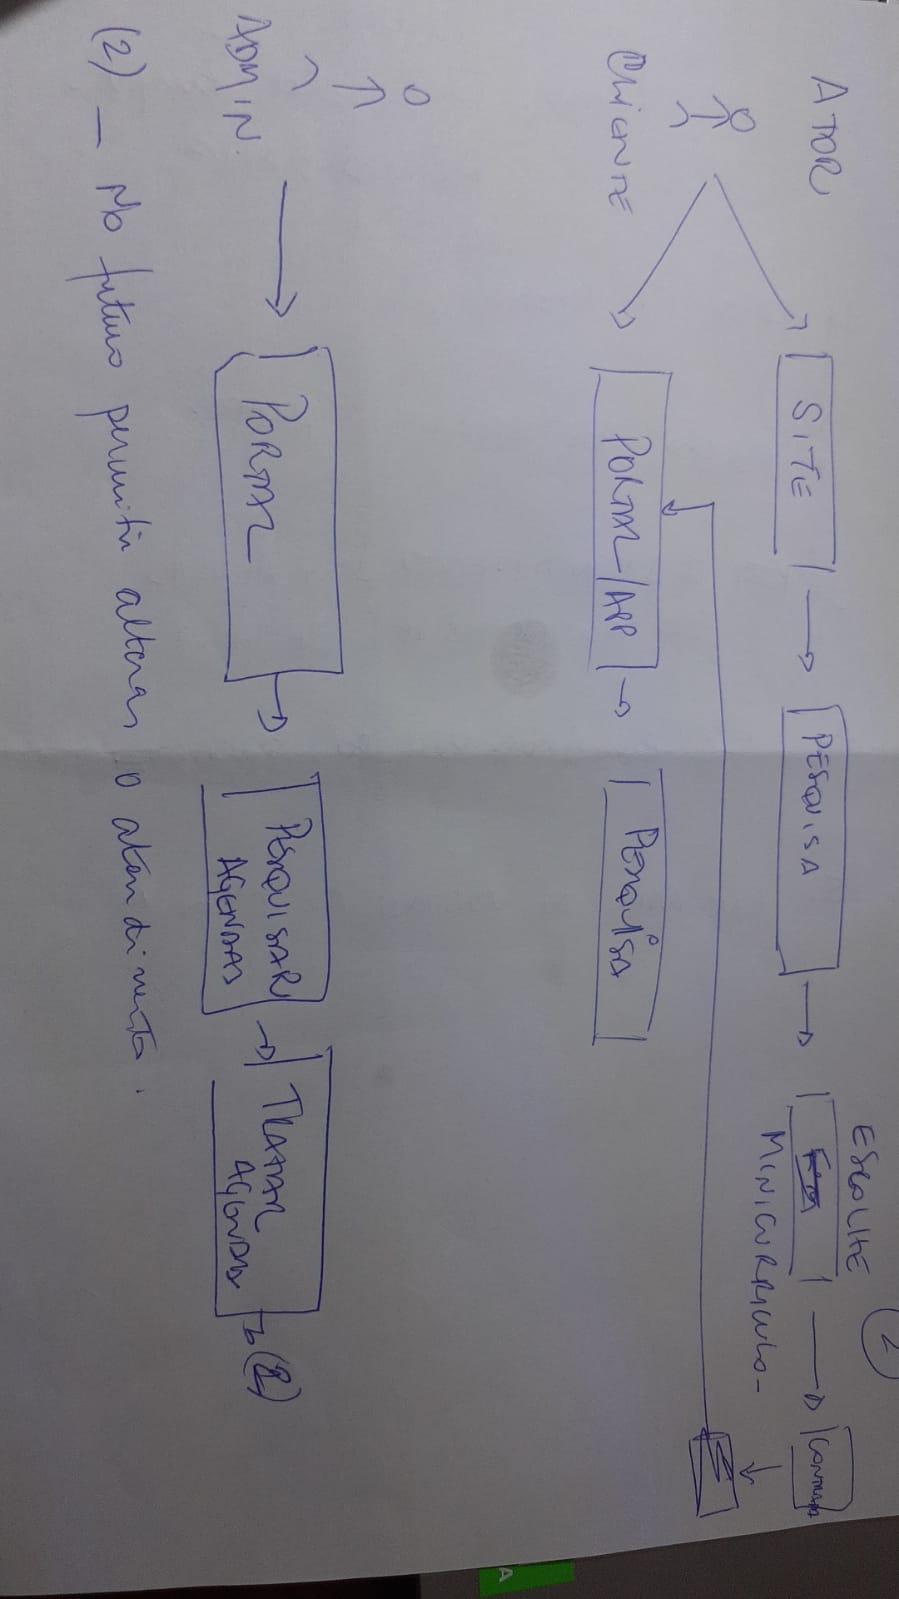 2
ATOR
SITE
PESQUISA
ESCOLHE
MINICURRICULO
CONTRATA
CLIENTE
PORTAL/APP
PESQUISA
A
ADMIN.
PORTAL
PESQUISAR
AGENDAS
TRATAR
AGENDAS
(2)
(2) - No futuro permitir alterar o atendimento.